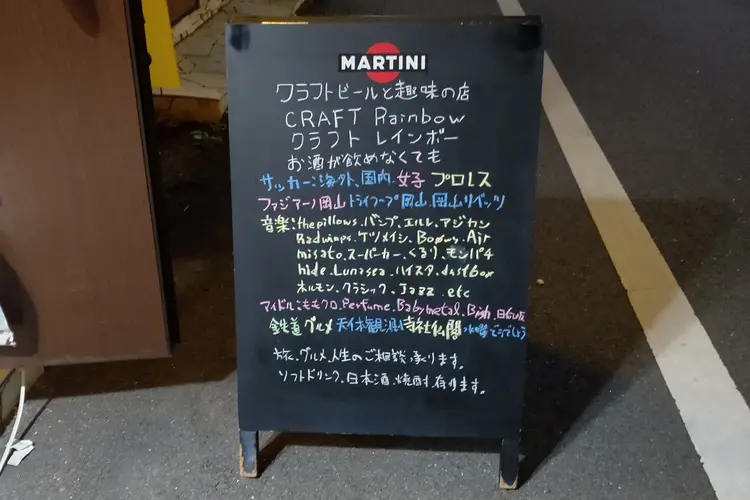 MARTINI
クラフトビールと趣味の店
CRAFT Rainbow
クラフト レインボー
お酒が飲めなくても
サッカー:海外、国内.女子 プロレス
ファジアーノ岡山 トライフープ岡山.岡山リベッツ
音楽:the pillows.バンプ.エルレ.アジカン
Radwimps.ケツメイシ.Boøwy.Air
misato.スーパーカー.くるり.モンパチ
hide.Lunasea.ハイスタ.dustbox
ホルモン.クラシック.Jazz.etc
アイドル:ももクロ.Perfume.Babymetal.Bish.
鉄道 グルメ 天体観測 寺社仏閣
旅、グルメ、人生のご相談、承ります。
ソフトドリンク、日本酒、焼酎も有ります。